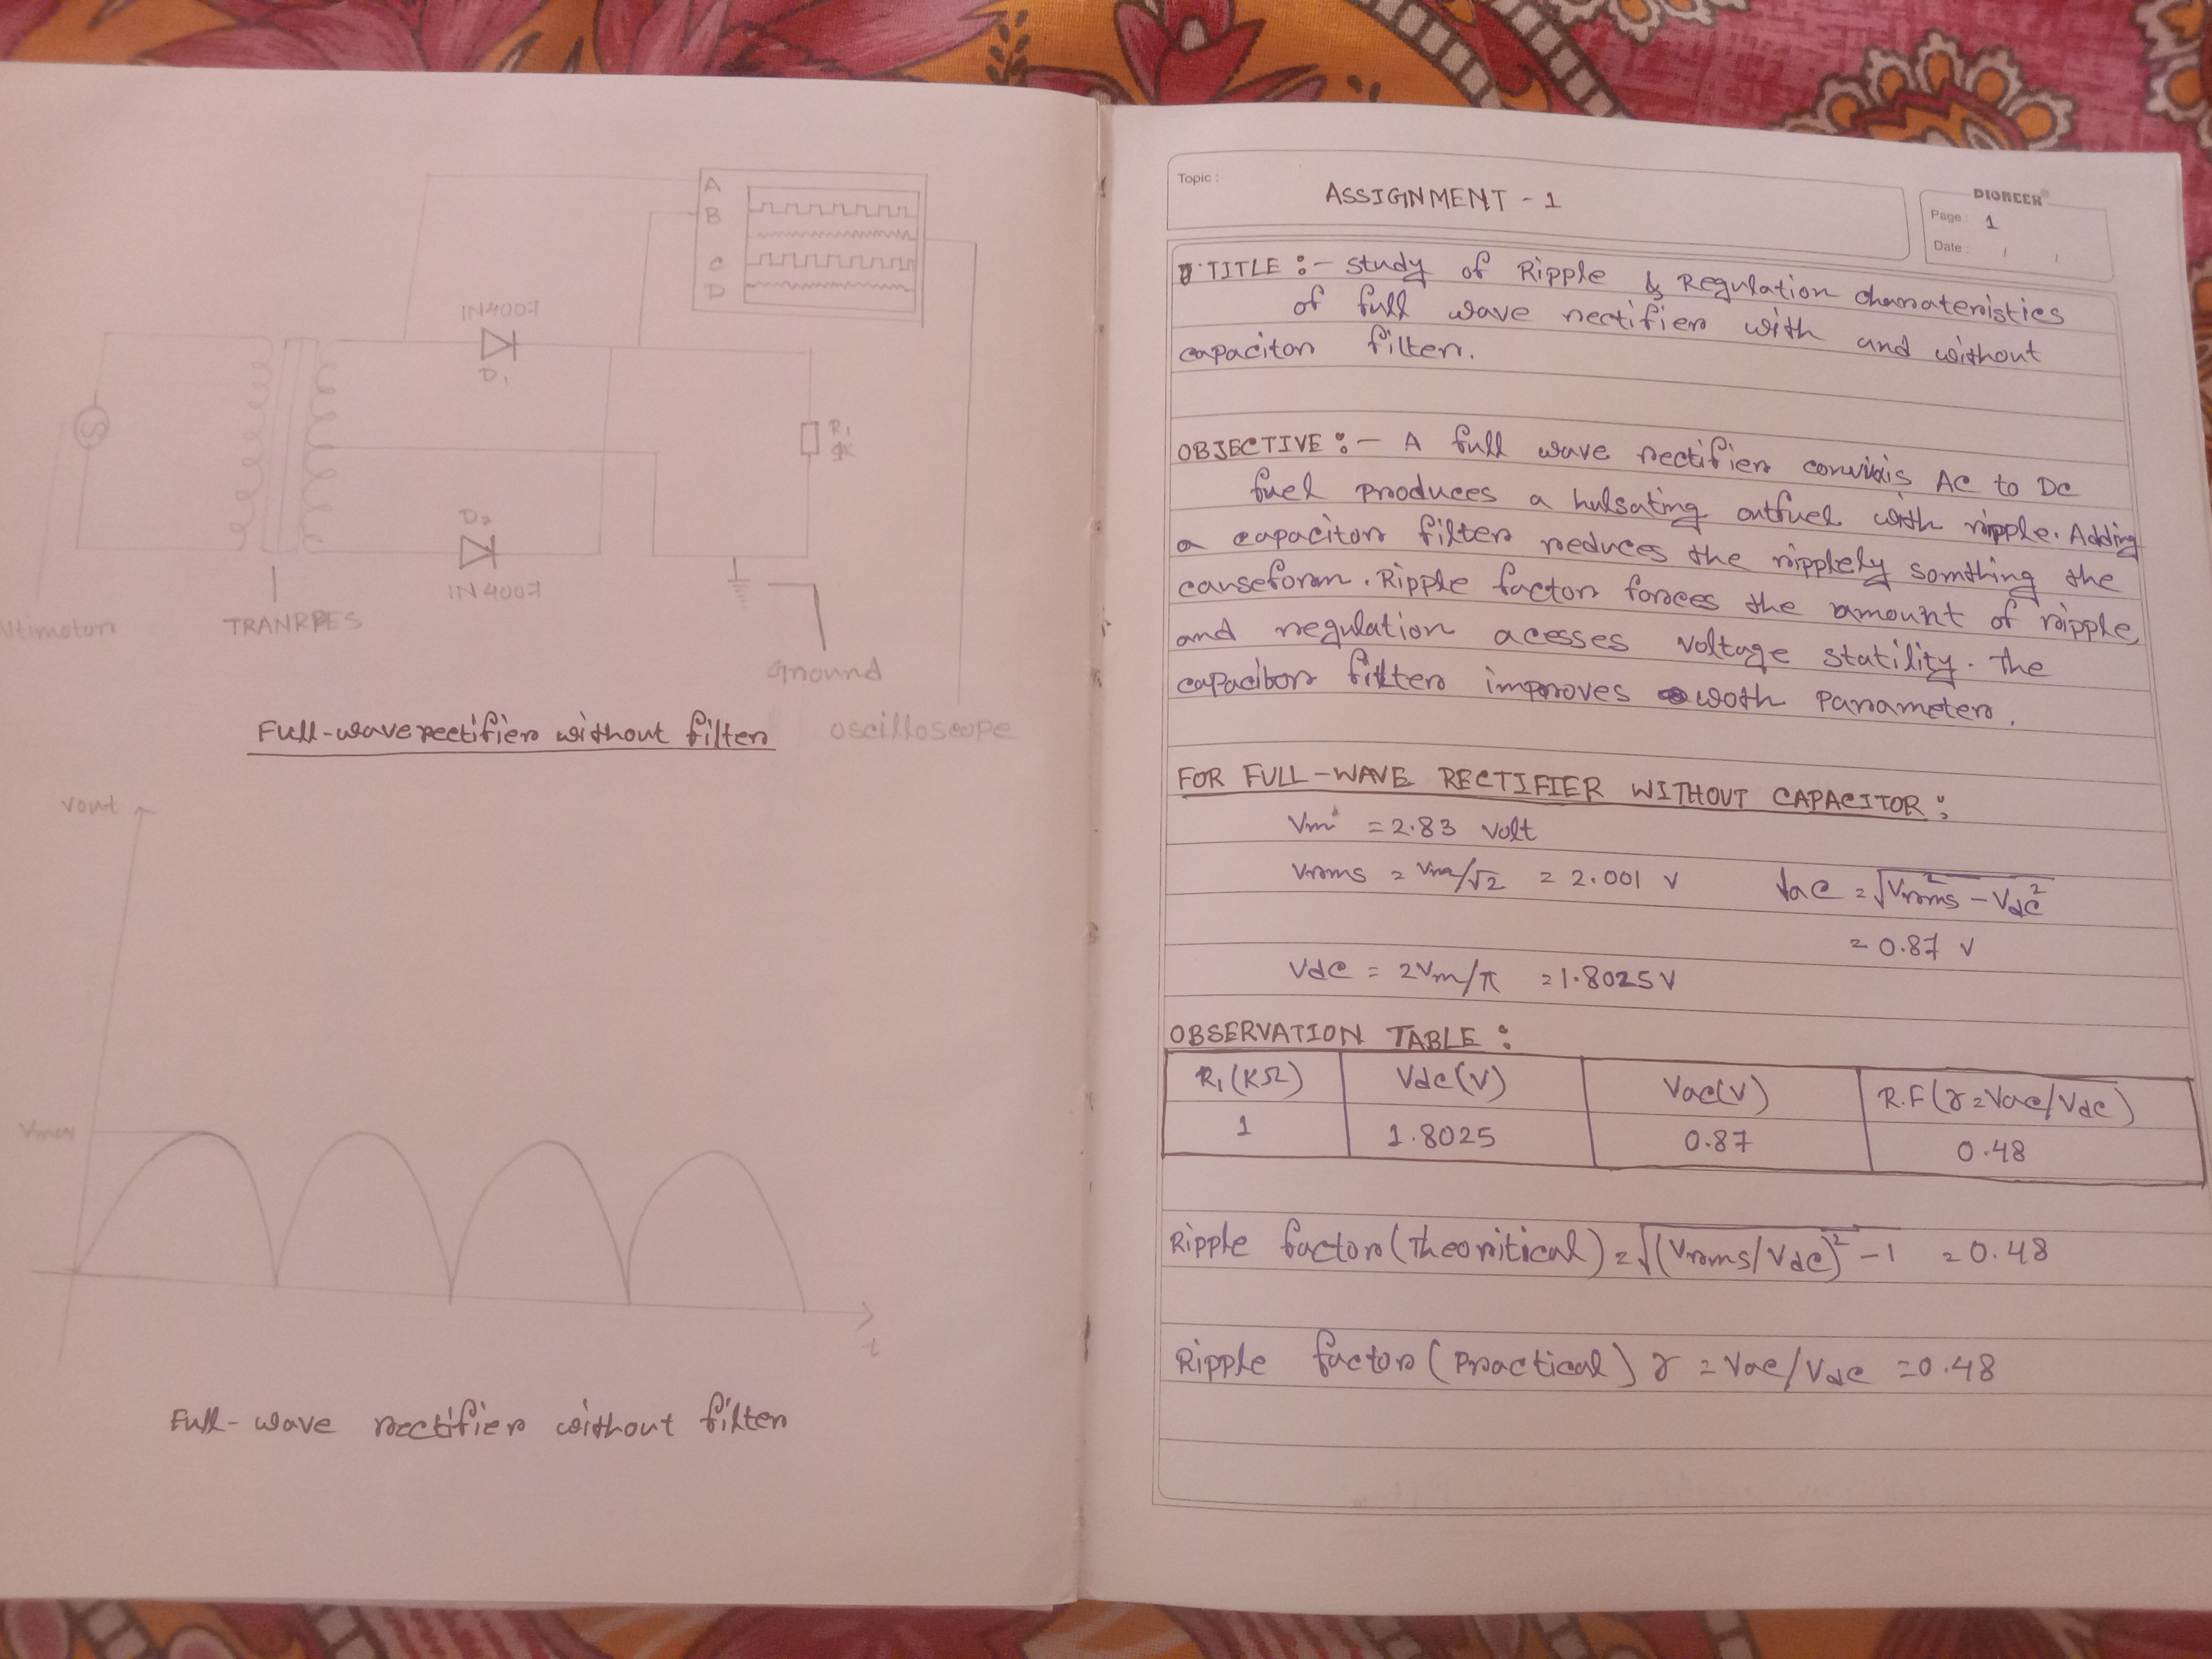 A
B
C
D
IN4007
D1
R1
1K
D2
IN4007
TRANRPES
Ground
oscilloscope
Full-wave rectifier without filter
Vout
Vmax
t
Full-wave rectifier without filter
Topic :
ASSIGNMENT - 1
PIONEER
Page : 1
Date : / /
TITLE :- Study of Ripple & Regulation charateristics
of full wave rectifier with and without
capacitor filter.
OBJECTIVE :- A full wave rectifier AC to DC
fuel produces a hulsating outfuel with ripple. Adding
a capacitor filter reduces the ripplely somthing the
causeform. Ripple factor forces the amount of ripple
and regulation acesses voltage statility. The
capacitor filter improves woth Parameter.
FOR FULL-WAVE RECTIFIER WITHOUT CAPACITOR :
Vm = 2.83 volt
Vrms = Vm/√2 = 2.001 V
Vac = √Vrms² - Vdc²
= 0.87 V
Vdc = 2Vm/π = 1.8025V
OBSERVATION TABLE :
R1(KΩ) Vdc(V) Vac(V) R.F(γ=Vac/Vdc)
1 1.8025 0.87 0.48
Ripple factor (Theoritical) = √(Vrms/Vdc)² - 1 = 0.48
Ripple factor (Practical) γ = Vac/Vdc = 0.48